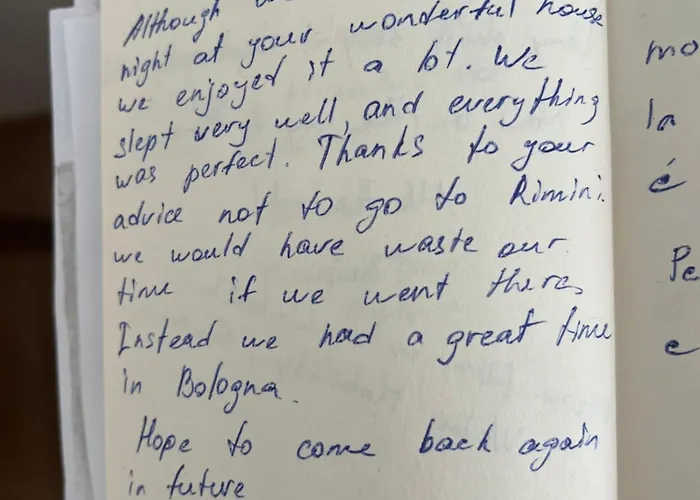 Although
night at your wonderful house
we enjoyed it a lot. We
slept very well, and everything
was perfect. Thanks to your
advice not to go to Rimini.
we would have waste our
time if we went there,
Instead we had a great time
in Bologna.
Hope to come back again
in future
mo
la
é
Pe
e